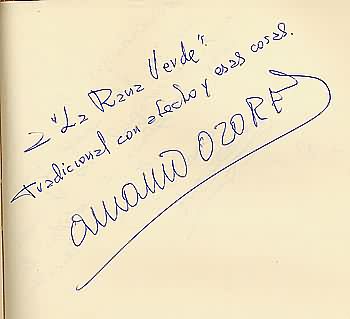 a "La Rana Verde".
tradicional con afecto y esas cosas.
ANTONIO OZORES